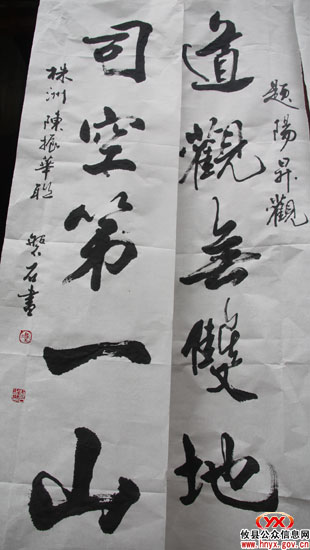 題陽昇觀
道觀無雙地
司空第一山
株洲陳振華聯
磐石書
攸县公众信息网
www.hnyx.gov.cn